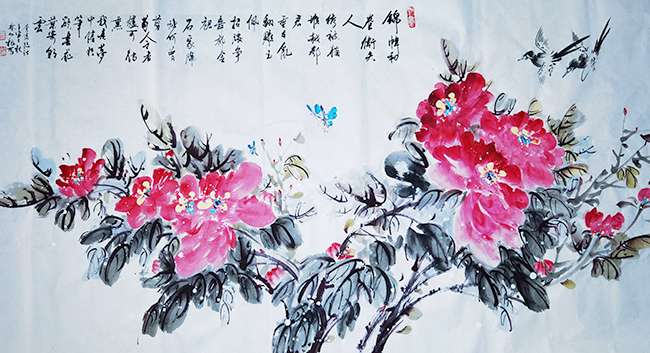 錦幃初
卷衛夫
人
绣被猶
堆越鄂
君
垂手乱
翻雕玉
佩
招腰争
舞郁金
裙
石家蜡
烛何曾
剪
荀令香
炉可待
熏
我是夢
中传彩
筆
欲書花
葉寄朝
雲